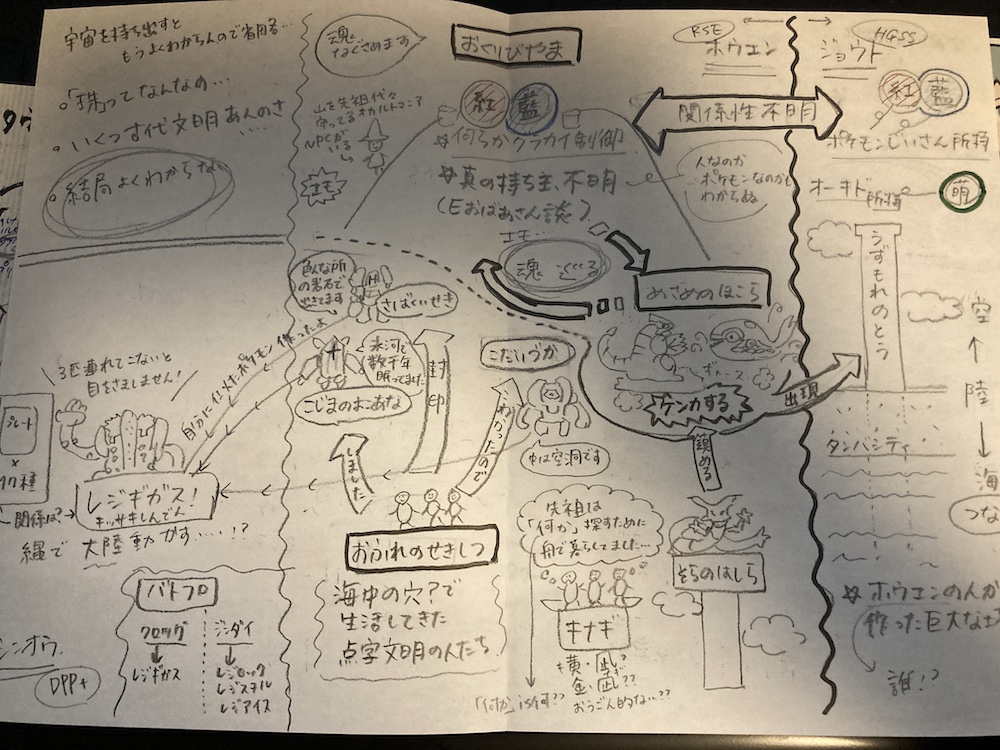 宇宙を持ち出すと
もうよくわからんので省略る…
「珠ってなんなの…
いくつす代文明あんのさ
……
結局よくわからない
魂
なぐさめます
おくりびやま
山を先祖代々
守ってるオカルトマニア
NPCが
いるし
エモ
紅
藍
何らかグラカイ制御
真の持ち主、不明
(Eおばあさん談)
エモ…
RSE
ホウエン
HGSS
ジョウト
関係性不明
紅
藍
ポケモンじいさん所持
人なのか
ポケモンなのかも
わからぬ
オーキド所持
萌
魂 巡る
めざめのほこら
うずもれのとう
空
↑
陸
↓
海
つな
色んな所
の岩石で
出きてます
さばくいせき
氷河で
数千年
眠ってました
こじまのおこあな
封印
こだいづか
ケンカする
出現
タンバシティ
自分に似せたポケモン作ったよ
3匹連れてこないと
目をさましません!
プレート
×
17種
関係は?
レジギガス!
キッサキしんでん
縄で大陸動かす……!?
しました
こわかったので
中は空洞です
鎮める
おふれのせきしつ
先祖は
「何か」探すために
舟で暮らしてました…
そらのはしら
海中の穴?で
生活してきた
点字文明の人たち
キナギ
黄・凪?
金・凪??
おうごん的ない??
「何か」is何??
ホウエンの人が
作った巨大な土
誰!?
バトフロ
クロツグ
↓
レジギガス
ジンダイ
↓
レジロック
レジスチル
レジアイス
シンオウ
DPP+